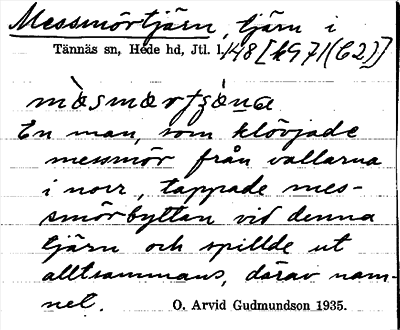 Messmörtjärn, tjärn i
Tännäs sn, Hede hd, Jtl. l. 148 [k971(C2)]
mæ̀smærtʃæ̀ṇa
En man, som klövjade
messmör från vallarna
i norr, tappade mes-
smörbyttan vid denna
tjärn och spillde ut
alltsammans, därav nam-
net.
O. Arvid Gudmundson 1935.